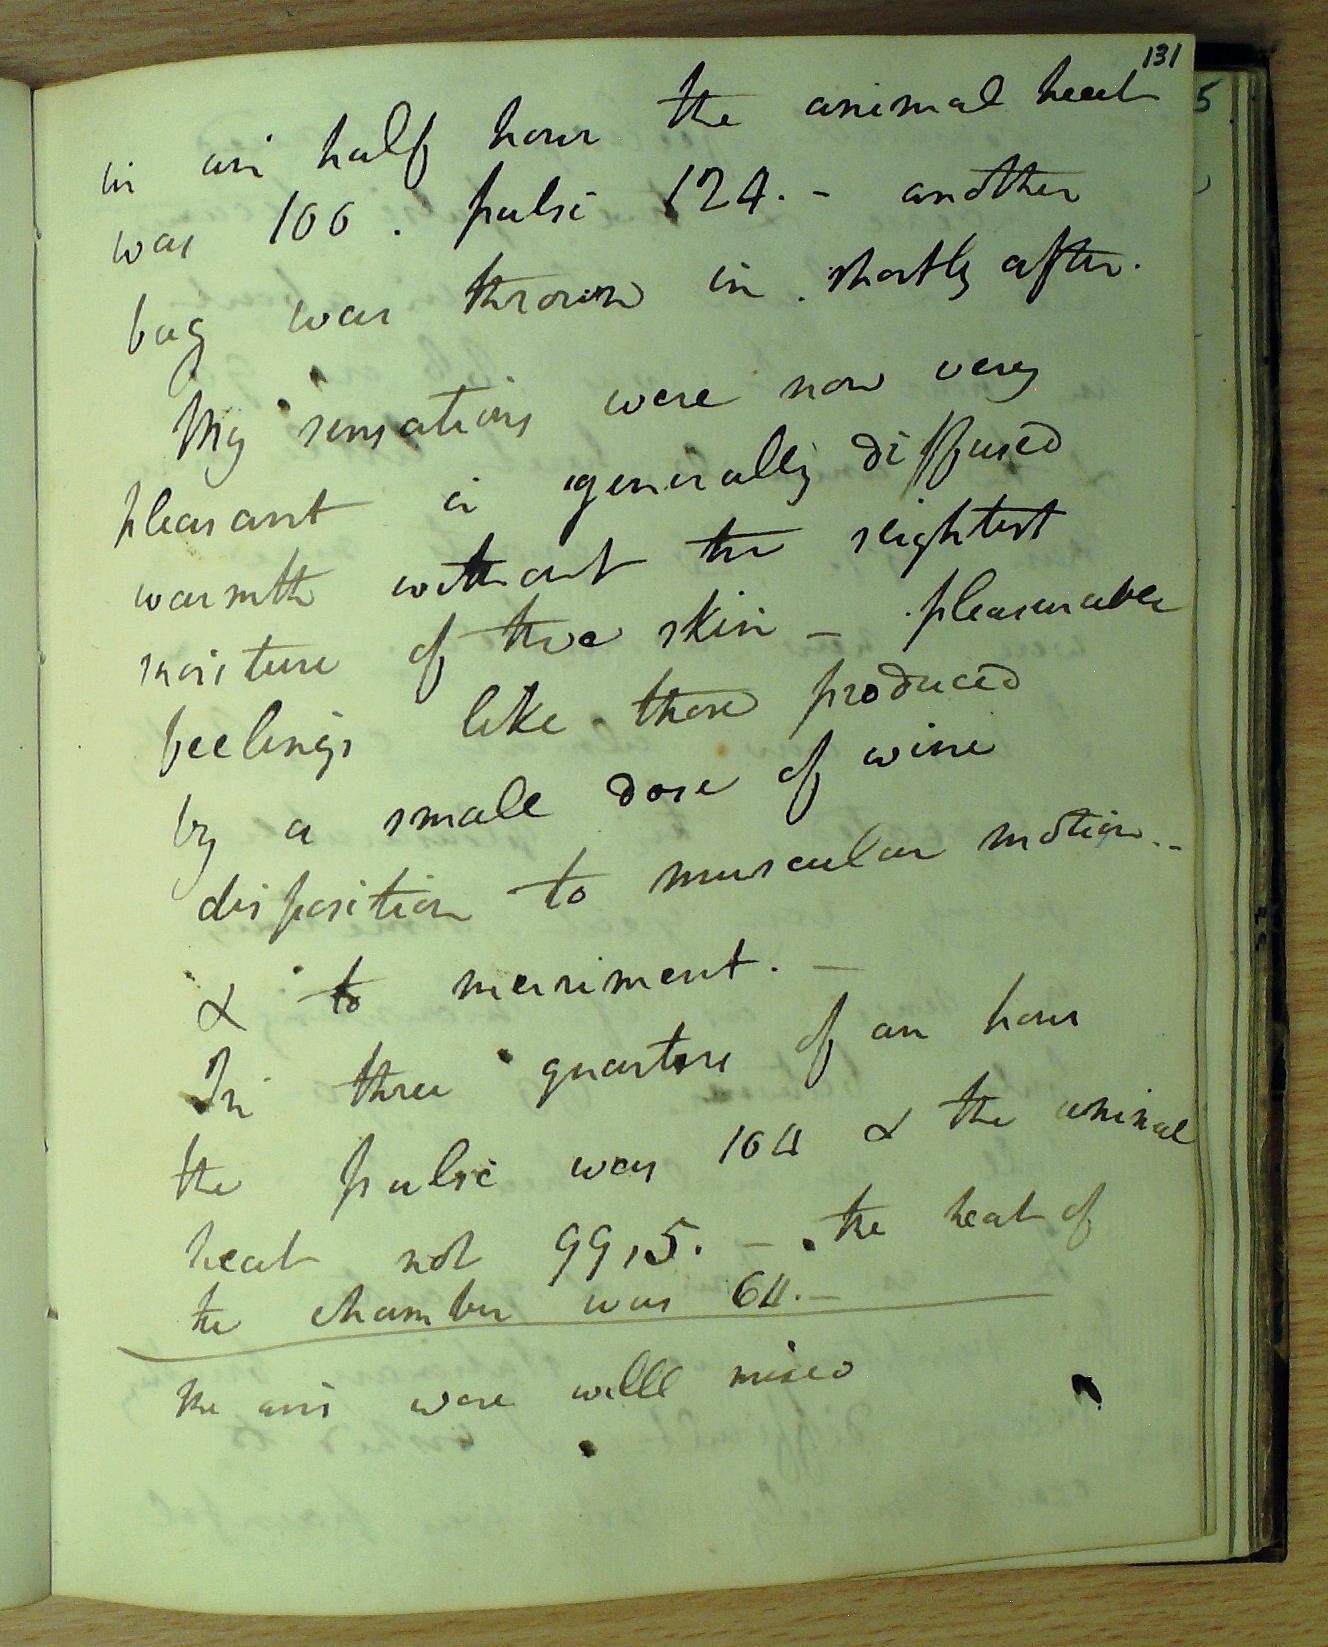 131
in an half hour the animal heat
was 100. pulse 124. - another
bag was thrown in shortly after.
My sensations were now very
pleasant a generally diffused
warmth without the slightest
moisture of the skin - pleasurable
feelings like those produced
by a small dose of wine
disposition to muscular motion. -
& to merriment. -
In three quarters of an hour
the pulse was 104 & the animal
heat not 99,5. - the heat of
the chamber was 64. -
the airs were welll mixed